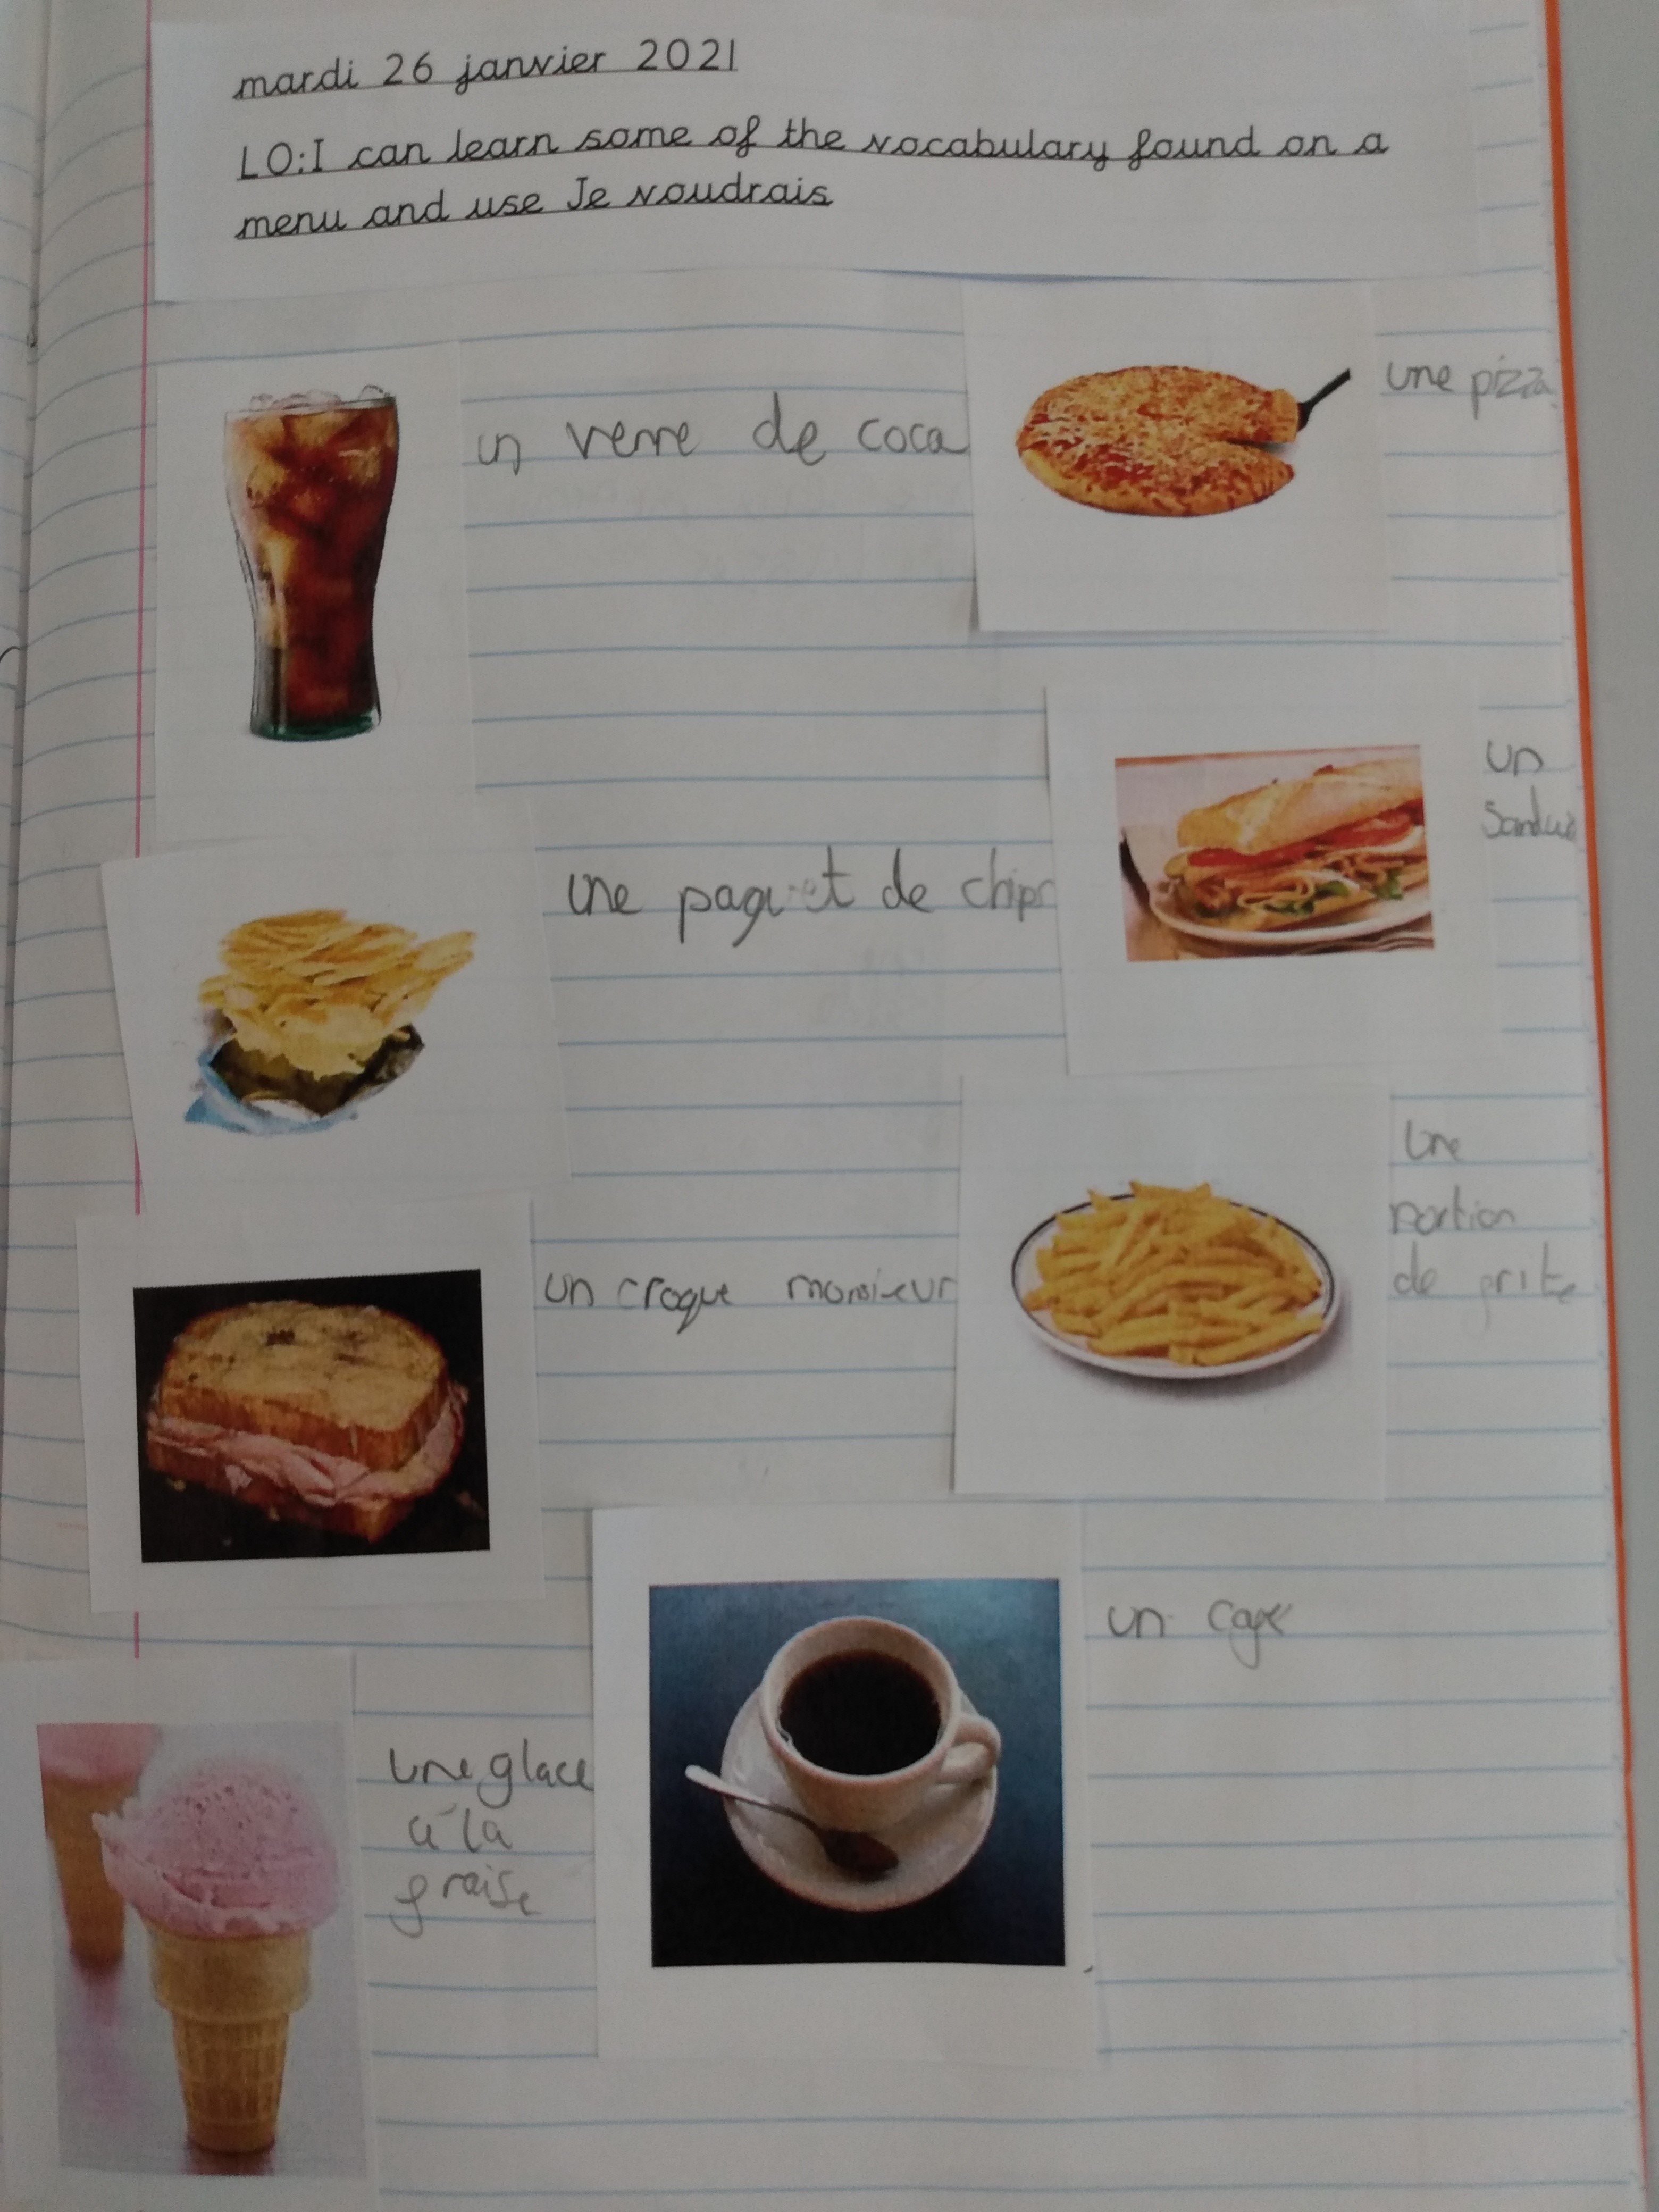 mardi 26 janvier 2021
LO:I can learn some of the vocabulary found on a
menu and use Je voudrais
un verre de coca
une pizza
un
une paquet de chips
une
portion
de
un croque monsieur
un café
une glace
à la
fraise